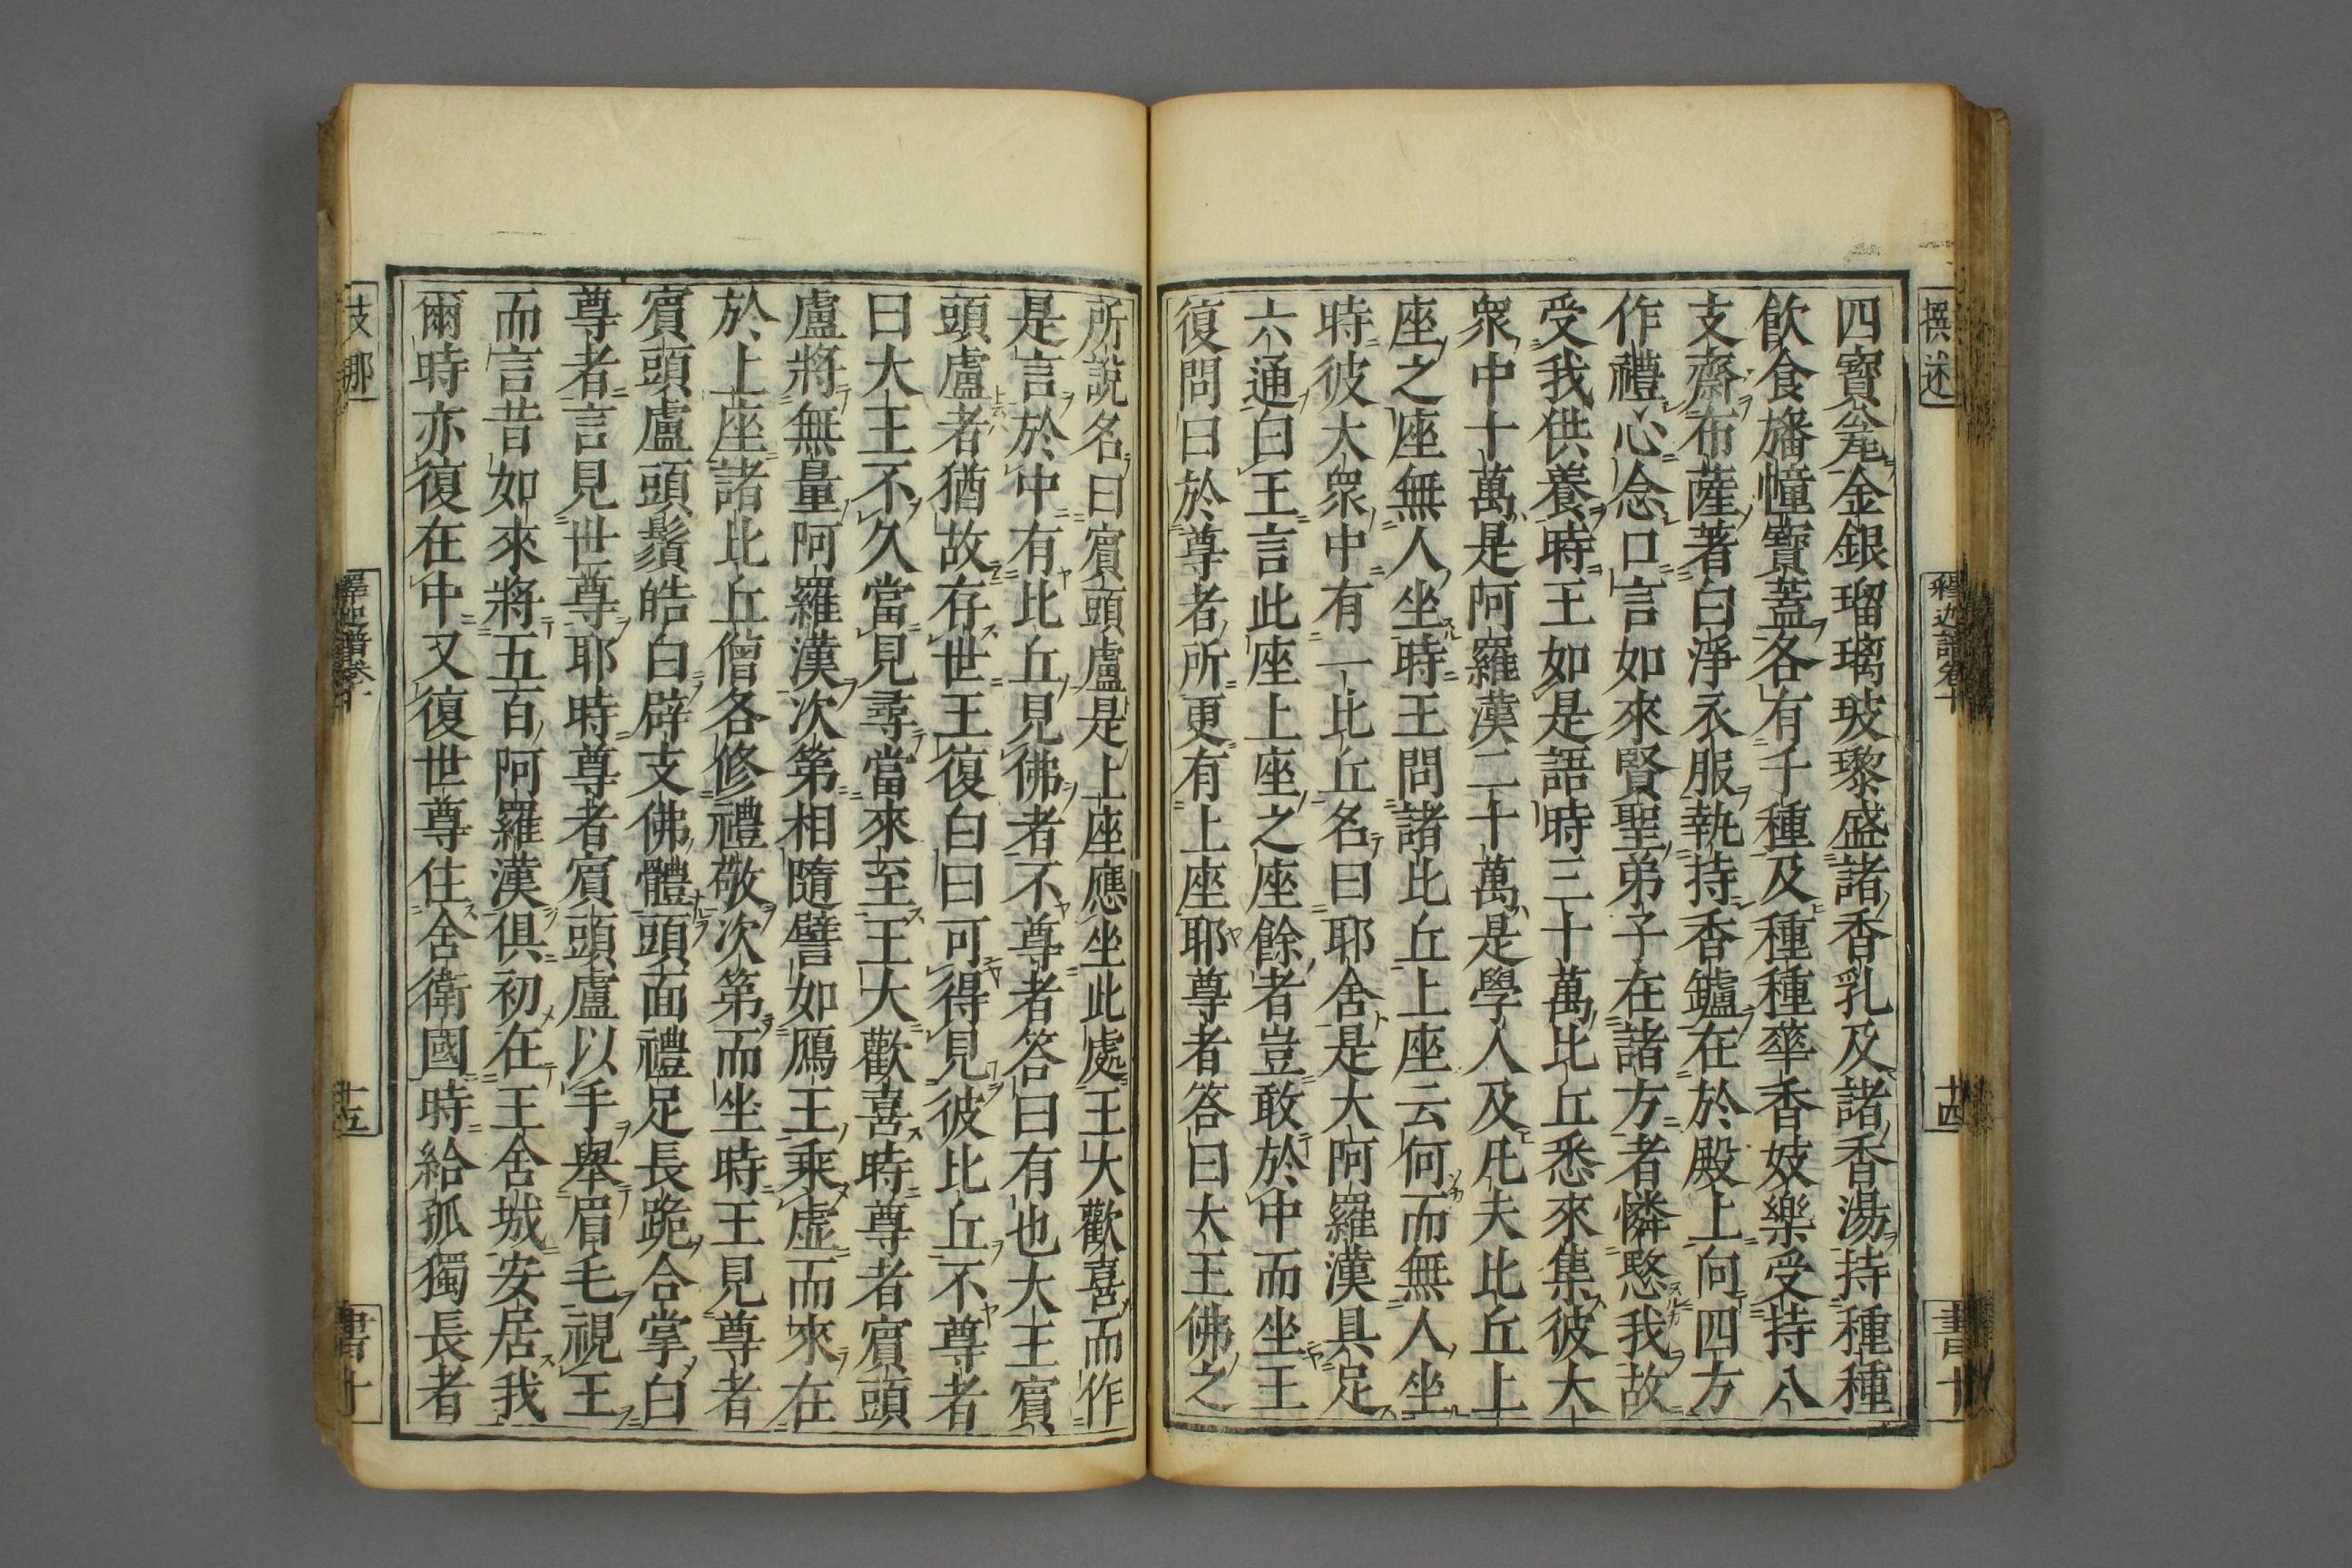 撰述
釋迦譜卷十
十四
書十
四寶瓮金銀瑠璃玻瓈盛諸香乳及諸香湯持種種
飲食旛幢寶蓋各有千種及種種華香妓樂受持八
支齋布薩著白淨衣服執持香鑪在於殿上向四方
作禮心念口言如來賢聖弟子在諸方者憐愍我故
受我供養時王如是語時三十萬比丘悉來集彼大
衆中十萬是阿羅漢二十萬是學人及凡夫比丘上
座之座無人坐時王問諸比丘上座云何而無人坐
時彼大衆中有一比丘名曰耶舍是大阿羅漢具足
六通白王言此座上座之座餘者豈敢於中而坐王
復問曰於尊者所更有上座耶尊者答曰大王佛之
所說名曰賓頭盧是上座應坐此處王大歡喜而作
是言於中有比丘見佛者不尊者答曰有也大王賓
頭盧者猶故存世王復白曰可得見彼比丘不尊者
曰大王不久當見尋當來至王大歡喜時尊者賓頭
盧將無量阿羅漢次第相隨譬如鴈王乘虛而來在
於上座諸比丘僧各修禮敬次第而坐時王見尊者
賓頭盧頭鬚皓白辟支佛體頭面禮足長跪合掌白
尊者言見世尊耶時尊者賓頭盧以手舉眉毛視王
而言昔如來將五百阿羅漢俱初在王舍城安居我
爾時亦復在中又復世尊住舍衛國時給孤獨長者
支那
釋迦譜卷十
十五
書十